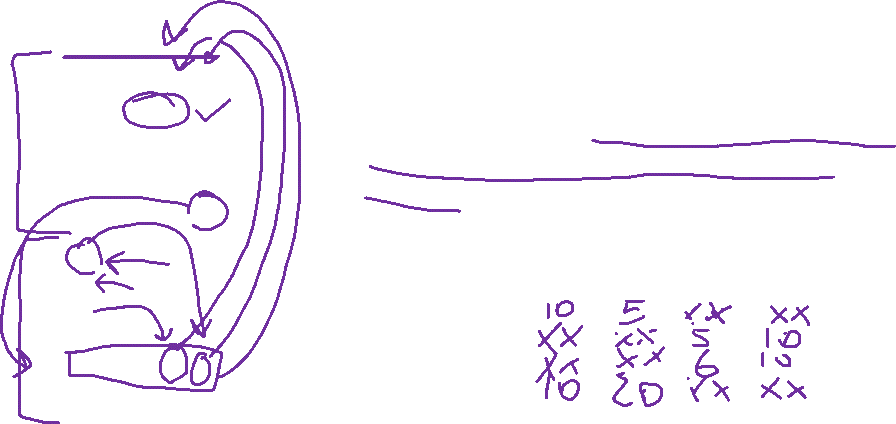 10 5 xx xx
xx xx 5 10
xx xx 6 10
10 20 xx xx